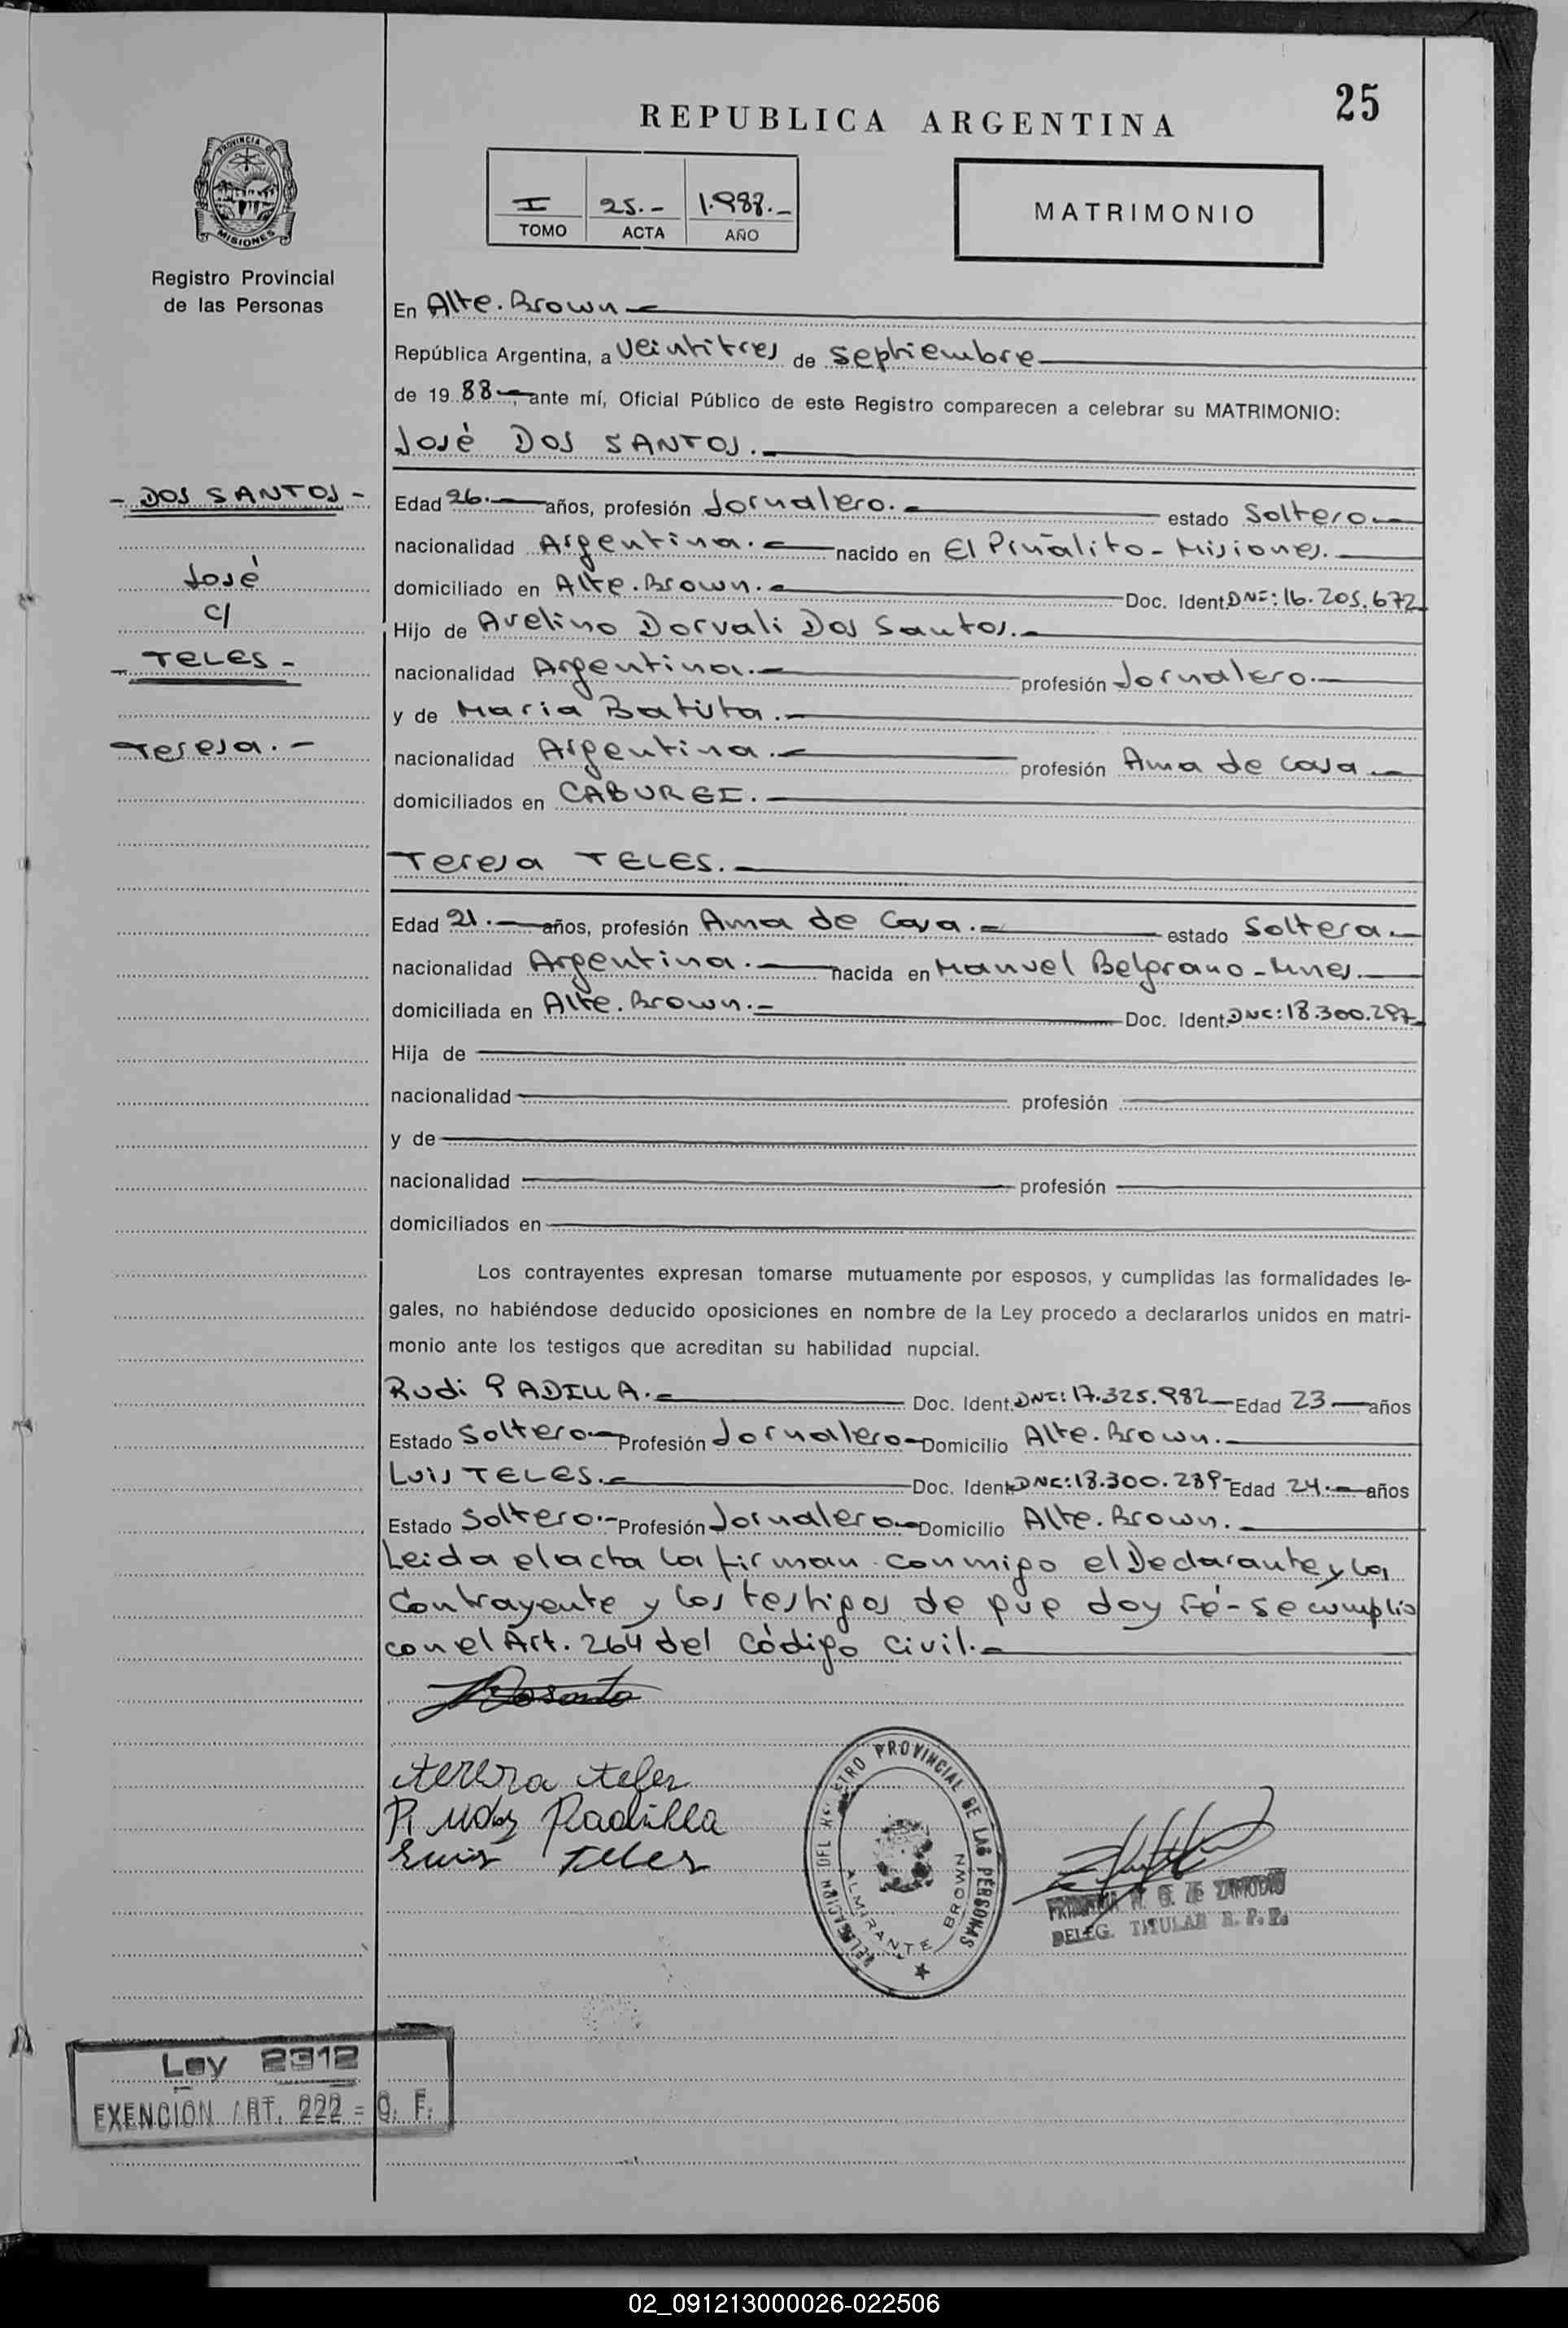 25
REPUBLICA ARGENTINA
PROVINCIA DE
MISIONES
Registro Provincial
de las Personas
I 25.- 1.988.-
TOMO ACTA AÑO
MATRIMONIO
En Alte. Brown
República Argentina, a veintitres de septiembre
de 19 88 , ante mí, Oficial Público de este Registro comparecen a celebrar su MATRIMONIO:
José DOS SANTOS.
- DOS SANTOS -
José
c/
- TELES -
Teresa.-
Edad 26.- años, profesión Jornalero. estado Soltero
nacionalidad Argentina. nacido en El Piñalito - Misiones.
domiciliado en Alte. Brown. Doc. Ident. DNI: 16.205.672
Hijo de Avelino Dorvali Dos Santos.
nacionalidad Argentina. profesión Jornalero.
y de Maria Batista.
nacionalidad Argentina. profesión Ama de casa
domiciliados en CABUREI.
Teresa TELES.
Edad 21.- años, profesión Ama de Casa. estado Soltera.
nacionalidad Argentina. nacida en Manuel Belgrano - Mnes.
domiciliada en Alte. Brown. Doc. Ident. DNI: 18.300.297
Hija de
nacionalidad profesión
y de
nacionalidad profesión
domiciliados en
Los contrayentes expresan tomarse mutuamente por esposos, y cumplidas las formalidades le-
gales, no habiéndose deducido oposiciones en nombre de la Ley procedo a declararlos unidos en matri-
monio ante los testigos que acreditan su habilidad nupcial.
Rudi PADILLA. Doc. Ident. DNI: 17.325.982 Edad 23 años
Estado Soltero Profesión Jornalero Domicilio Alte. Brown.
Luis TELES. Doc. Ident. DNI: 18.300.289 Edad 24. años
Estado Soltero.- Profesión Jornalero Domicilio Alte. Brown.
Leida el acta la firman conmigo el Declarante y la
Contrayente y los testigos de que doy Fé - se cumplio
con el Art. 264 del Código Civil.
teresa teles
Rudy Padilla
Luis Teles
DELEGACION DEL REGISTRO PROVINCIAL DE LAS PERSONAS
ALMIRANTE BROWN
DELEG. TITULAR R. P. P.
Ley 2312
EXENCION ART. 222 - C. F.
02_091213000026-022506